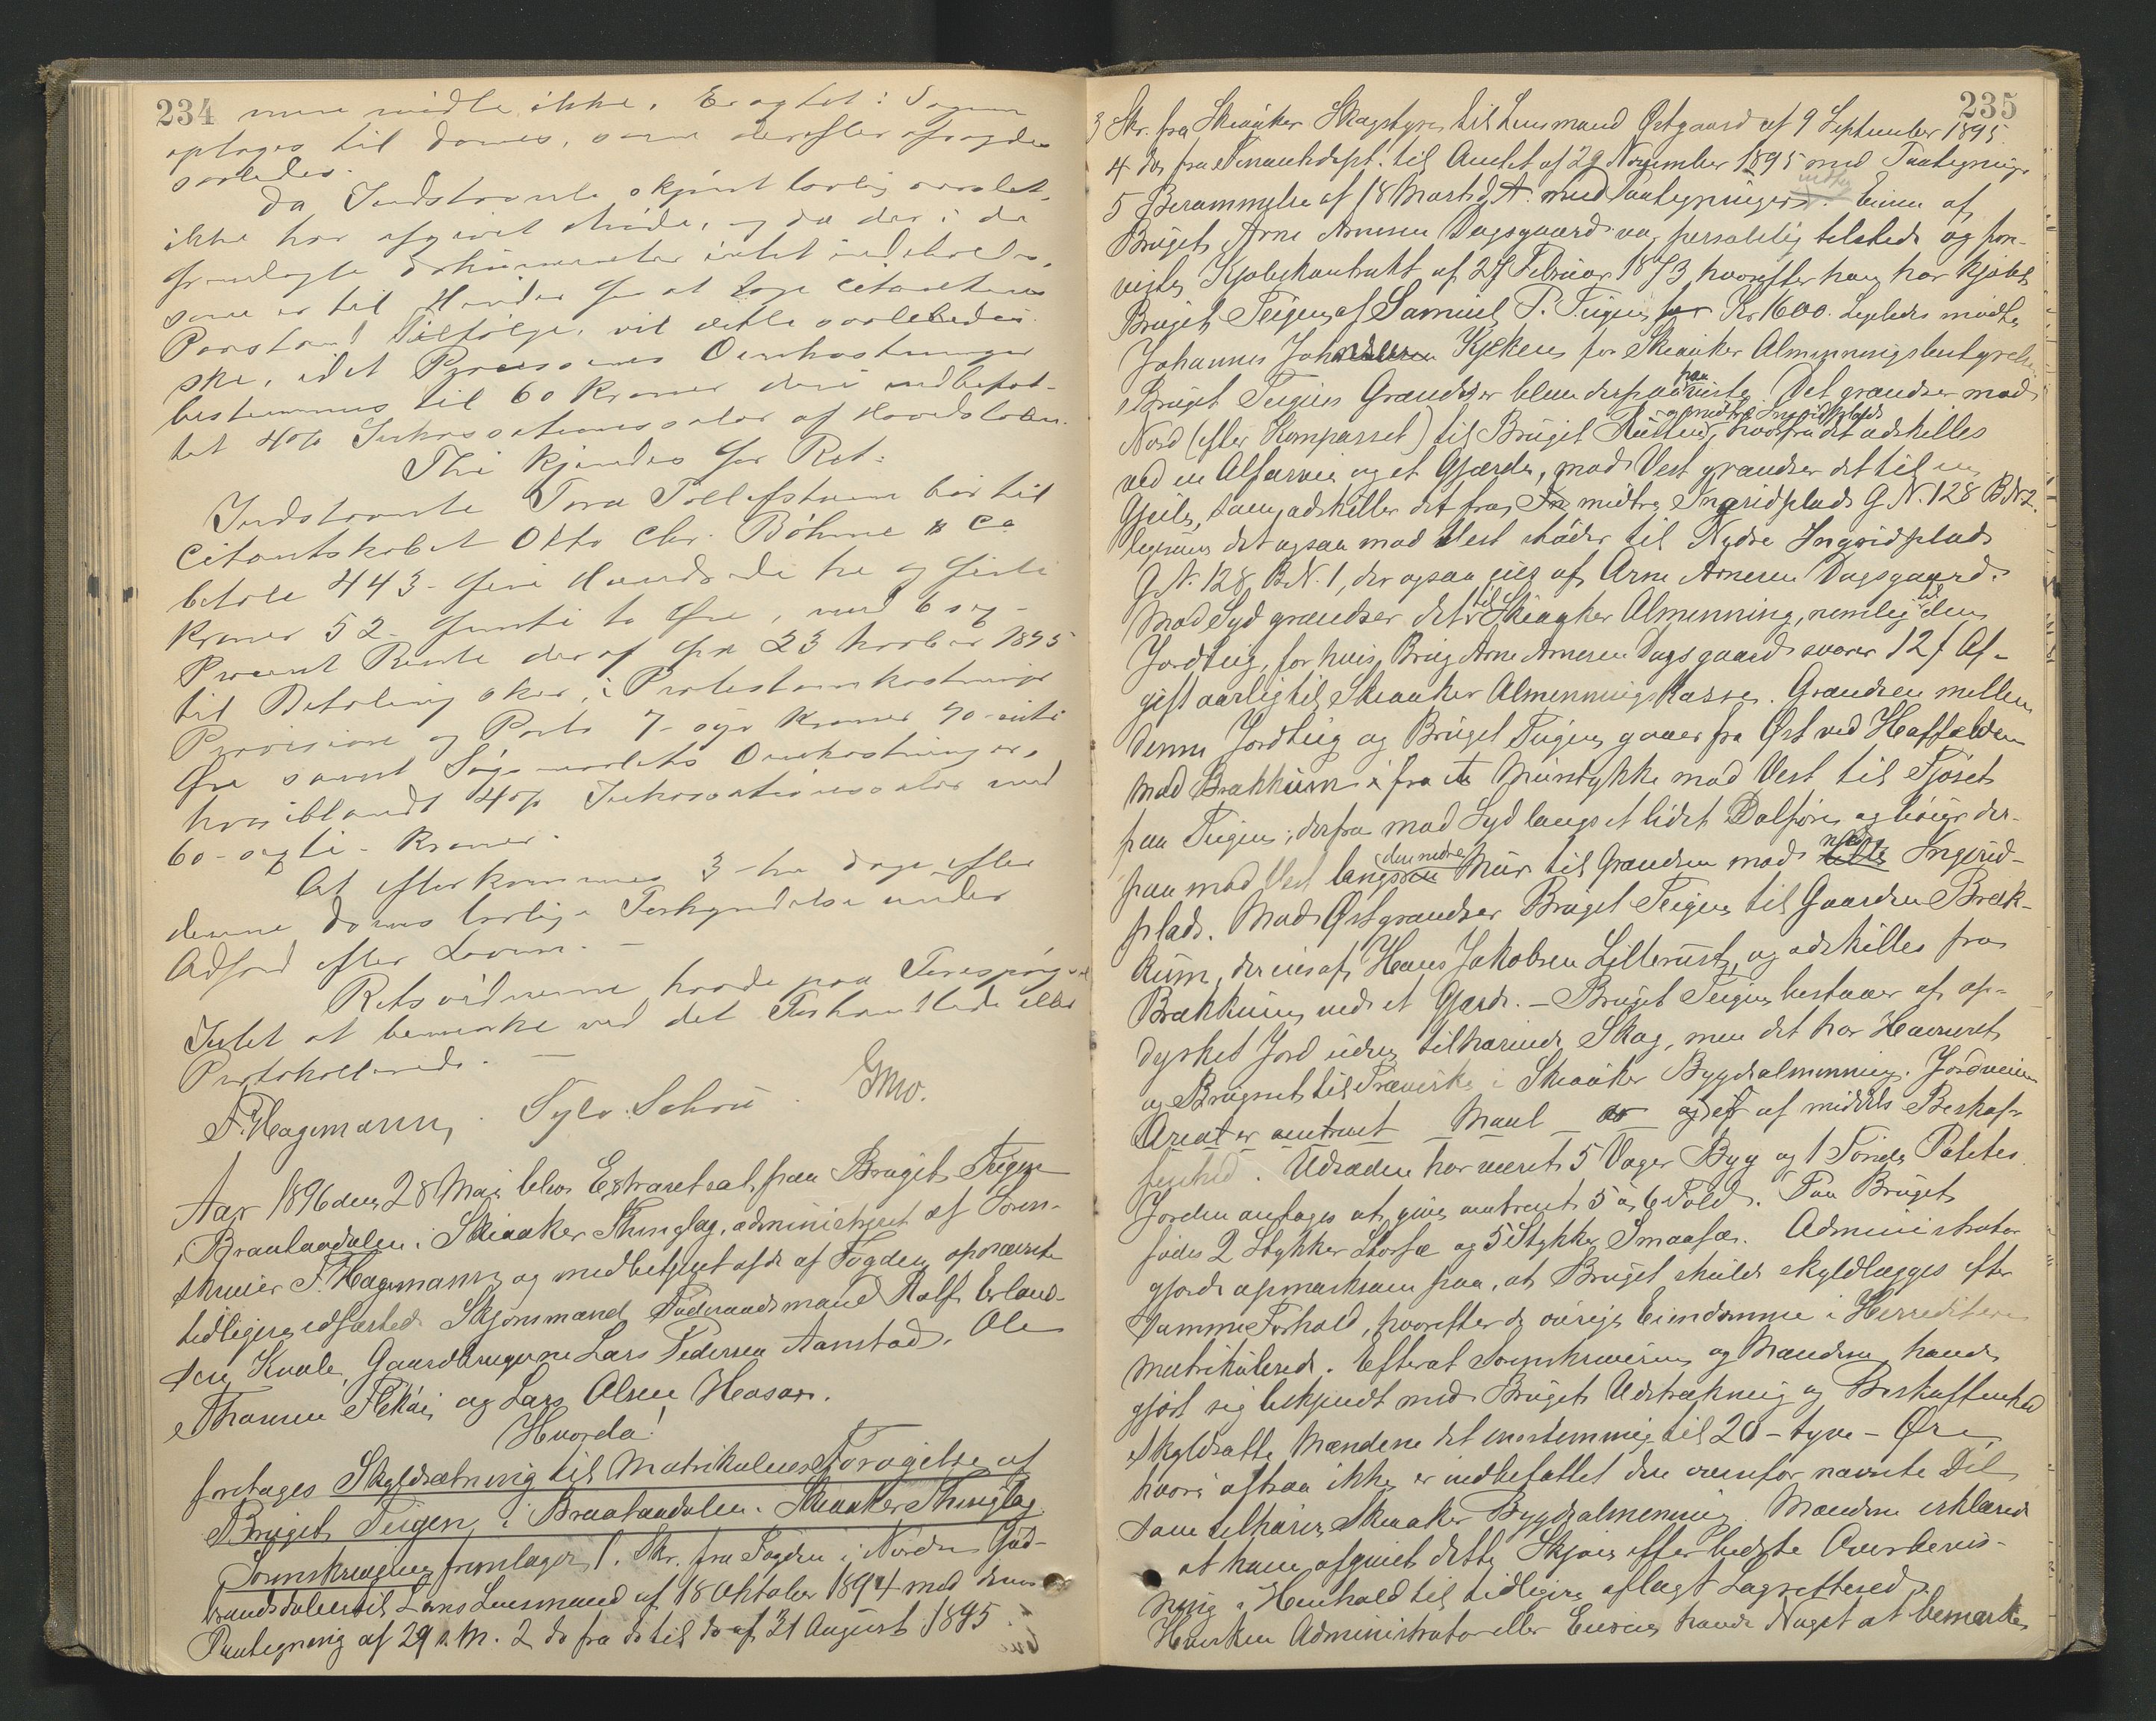 234
mere mødte ikke. Eragtet: Sagen
optages til Doms, som derefter afsagdes
saaledes.
Da Indstevnte skjønt lovlig varslet,
ikke har afgivet Møde, og da der i de
fremlagte Dokumenter intet indeholdes,
som er til Hinder for at tage Citantens
Paastand tilfølge, vil dette saaledes
ske, idet Processens Omkostninger
bestemmes til 60 Kroner deri indbefat-
tet 4% Inkassationssalær af Hovedstolen.
Thi kjendes for Ret:
Indstevnte Tora Tollefshaun bør til
Citantskabet Otto Chr. Böhme & Co
betale 443 - fire Hundrede tre og firti
Kroner 52 - femti to Øre, med 6 sex
Procent Rente deraf fra 23 1895
til Betaling sker, i Protestomkostninger
Provision og Porto 7 - syv Kroner 70 - sytti
Øre samt Søgsmaalets Omkostninger,
hvoriblandt 4% Inkassationssalær med
60 - sexti - Kroner.
At efterkommes 3 - tre Dage efter
denne Doms lovlige Forkyndelse under
Adfærd efter Loven. —
Retsvidnerne havde paa Forespørgsel
Intet at bemærke ved det Forhandlede eller
Protokollerede. —
F. Hagemann. Sylv. Schou. GMo.
Aar 1896 den 28 Mai blev Extraret sat paa Bruget Teigen
i Braataadalen i Skiaaker Thinglag, administreret af Soren-
skriver F. Hagemann og medbetjent af de af Fogden opnævnte
tidligere edfæstede Skjønsmænd Føderaadsmand Rolf Erland-
sen Kvale, Gaardbrugerne Lars Pedersen Aamstad, Ole
Thorsen Flekøi og Lars Olsen Hosar.
Hvorda!
foretages Skyldsætning til Matrikulens Forøgelse af
Bruget Teigen i Braataadalen i Skiaaker Thinglag.
Sorenskriveren fremlagde 1. Skr. fra Fogden i Nordre Gud-
brandsdalen til Loms Lensmand af 18 Oktober 1894 med dennes
Paategning af 29 s. M. 2 do fra do til do af 31 August 1895
235
3 Skr. fra Skiaaker Skogstyre til Lensmand Østgaard af 9 September 1895.
4 do fra Finantsdept. til Amtet af 29 November 1895 med Paategning.
5 Berammelse af 18 Marts d. A. med Paategninger. Eieren af
Bruget Arne Arnesen Dagsgaard var personlig tilstede og fore-
viste Kjøbekontrakt af 27 Februar 1873 hvorefter han har kjøbt
Bruget Teigen af Samuel P. Teigen for Kr 1600. Ligeledes mødte
Johannes Johnsen Kjeken for Skiaaker Almenningsbestyrelse.
Bruget Teigens Grændser blev derpaa paaviste. Det grændser mod
Nord (efter Kompasset) til Bruget Rusten og midtre Ingridplads, hvorfra det adskilles
ved en Alfarvei og et Gjærde, mod Vest grændser det til en
Gjeile, som adskiller det fra midtre Ingridplads G.N. 128 B.N. 2.
ligesom det ogsaa mod Vest støder til Nedre Ingridplads
G.N. 128 B.N. 1, der ogsaa eies af Arne Arnesen Dagsgaard.
Mod Syd grændser det til Skiaaker Almenning, nemlig til den
Jordteig, for hvis Brug Arne Arnesen Dagsgaard svarer 12 s Af-
gift aarlig til Skiaaker Almenningskasse. Grændsen mellem
denne Jordteig og Bruget Teigen gaaer fra Øst ved
mod Brækkum i fra et Murstykke mod Vest til Fjøset
paa Teigen; derfra mod Syd langs et lidet Dalføre og bøier der-
paa mod Vest langs den nedre Mur til Grændsen mod nedre Ingerid-
plads. Mod Øst grændser Bruget Teigen til Gaarden Bræk-
kum, der eies af Hans Jakobsen Lillerust, og adskilles fra
Brækkum ved et Gjærde. — Bruget Teigen bestaaer af op-
dyrket Jord uden tilhørende Skog, men det har Havneret
og Brugsret til Trævirke i Skiaaker Bygdealmenning. Jordveien
Areal er omtrent Maal og er af middels Beskaf-
fenhed. Udsæden har været 5 Vager Byg og 1 Tønde Potetes.
Jorden antages at give omtrent 5 a 6 Fold. Paa Bruget
fødes 2 Stykker Storfæ og 5 Stykker Smaafæ. Administrator
gjorde opmærksom paa, at Bruget skulde skyldlægges efter
samme Forhold, hvorefter de øvrige Eiendomme i Herredet ere
matrikulerede. Efterat Sorenskriveren og Mændene havde
gjort sig bekjendt med Brugets Udstrækning og Beskaffenhed
skyldsatte Mændene det enstemmig til 20 - tyve - Øre,
hvori altsaa ikke er indbefattet den ovenfor nævnte Del
som tilhører Skiaaker Bygdealmenning. Mændene erklærede
at have afgivet dette Skjøn efter bedste Overbevis-
ning i Henhold til tidligere aflagt Lagretteed.
Hverken Administrator eller Eieren havde Noget at bemærke